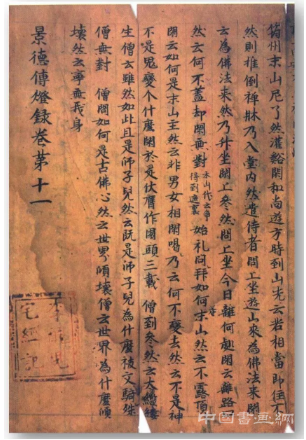 筠州末山尼了然灌谿閑和尚遊方時到山先云若相當即住不
然則推倒禪床乃入堂內然遣侍者問上坐遊山來為佛法來閑
云為佛法來然乃升坐閑上參然問上坐今日離何處閑云離路口
然云何不蓋却閑無對末山代云爭得到遮裏始礼問拜如何末山然云不露頂
閑云如何是末山主然云非男女相閑喝乃云何不變去然云不是神
不是鬼變个什麼閑於是伏膺作園頭三載 僧到參然云太繿縷
生僧云雖然如此且是師子兒然云既是師子兒為什麼被文殊騎
僧無對 僧問如何是古佛心然云世界傾壞僧云世界為什麼傾
壞然云寧無我身
景德傳燈錄卷第十一
中国书画网